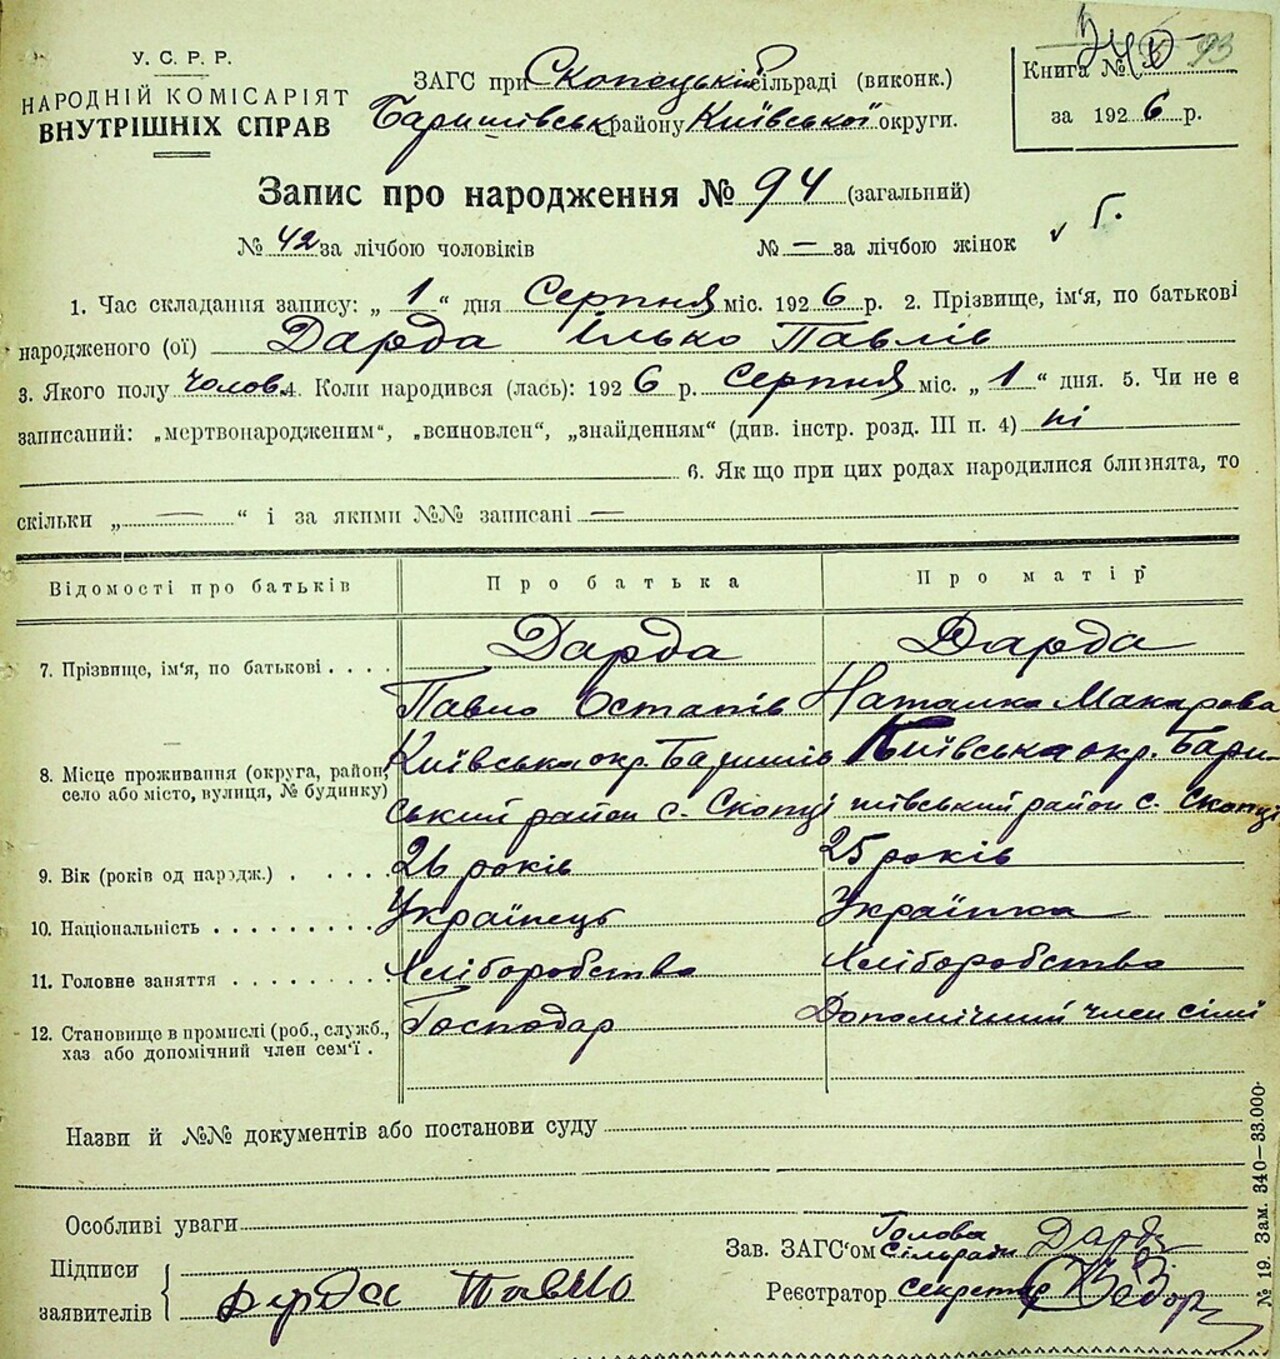 У. С. Р. Р.
НАРОДНІЙ КОМІСАРІЯТ
ВНУТРІШНІХ СПРАВ
ЗАГС при Скопецькій сільраді (виконк.)
Баришівськ. району Київської округи.
Книга №
93
за 1926 р.
Запис про народження № 94 (загальний)
№ 42 за лічбою чоловіків № — за лічбою жінок
1. Час складання запису: „ 1 “ дня Серпня міс. 1926 р. 2. Прізвище, ім'я, по батькові
народженого (ої) Дарда Ілько Павлів
3. Якого полу чолов. 4. Коли народився (лась): 1926 р. Серпня міс. „ 1 “ дня. 5. Чи не є
записаний: „мертвонародженим“, „всиновлен“, „знайденням“ (див. інстр. розд. III п. 4) ні
6. Якщо при цих родах народилися близнята, то
скільки „ — “ і за якими №№ записані —
Відомості про батьків Про батька Про матір
7. Прізвище, ім'я, по батькові . . . . Дарда Дарда
Павло Остапів Наталка Макарова
8. Місце проживання (округа, район, село або місто, вулиця, № будинку) Київська окр. Баришів Київська окр. Бари-
ський район с. Скопці шівський район с. Скопці
9. Вік (років од народж.) . . . . . 26 років 25 років
10. Національність . . . . . . . . . Українець Українка
11. Головне заняття . . . . . . . . Хліборобство Хліборобство
12. Становище в промислі (роб., служб., Господар Допомічний член сімі
хаз або допомічний член сем'ї .
Назви й №№ документів або постанови суду
Особливі уваги
Підписи
заявителів Дарда Павло
Зав. ЗАГС'ом Голова Сільради Дарда
Реєстратор секретар
№ 19. Зам. 340—33.000.